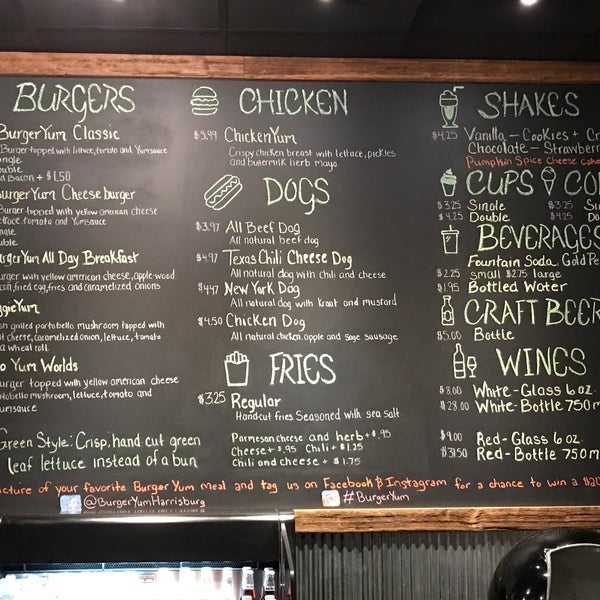 BURGERS
BurgerYum Classic
Burger topped with lettuce, tomato and Yumsauce
ngle
uble
d Bacon + $1.50
urgerYum Cheeseburger
Burger topped with yellow american cheese
ettuce, tomato and Yumsauce
ngle
uble
urgerYum All Day Breakfast
urger with yellow american cheese, apple-wood
con, fried egg, fries and caramelized onions
ggieYum
sh grilled portobello mushroom topped with
t cheese, caramelized onion, lettuce, tomato
a wheat roll
o Yum Worlds
urger topped with yellow american cheese
rtobello mushroom, lettuce, tomato and
umsauce
Green Style: Crisp, hand cut green
leaf lettuce instead of a bun
CHICKEN
$5.99 ChickenYum
Crispy chicken breast with lettuce, pickles
and buttermilk herb mayo
DOGS
$3.97 All Beef Dog
All natural beef dog
$4.97 Texas Chili Cheese Dog
All natural dog with chili and cheese
$4.47 New York Dog
All natural dog with kraut and mustard
$4.50 Chicken Dog
All natural chicken, apple and sage sausage
FRIES
$3.25 Regular
Handcut fries Seasoned with sea salt
Parmesan cheese and herb + $.95
Cheese + $.95 Chili + $1.25
Chili and cheese + $1.75
SHAKES
$4.25 Vanilla - Cookies + Cr
Chocolate - Strawberr
Pumpkin Spice Cheese cake
CUPS CO
$3.25 Single $3.25 Si
$4.25 Double $4.25 Do
BEVERAGES
Fountain Soda, Gold Pe
$2.25 small $2.75 large
$1.95 Bottled Water
CRAFT BEER
$5.00 Bottle
WINES
$8.00 White - Glass 6 oz.
$28.00 White - Bottle 750 m
$9.00 Red - Glass 6 oz.
$31.50 Red - Bottle 750 m
icture of your favorite BurgerYum meal and tag us on Facebook & Instagram for a chance to win a $20
@BurgerYumHarrisburg
#BurgerYum